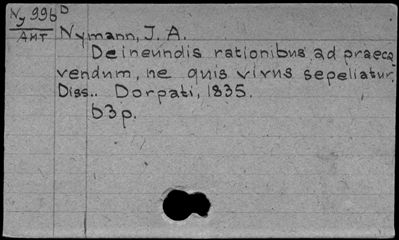 Ny 99b D
AHT Nymann, J. A.
Deineundis rationibus ad praeca
vendum, ne quis vivus sepeliatur.
Diss.. Dorpati, 1835.
63p.